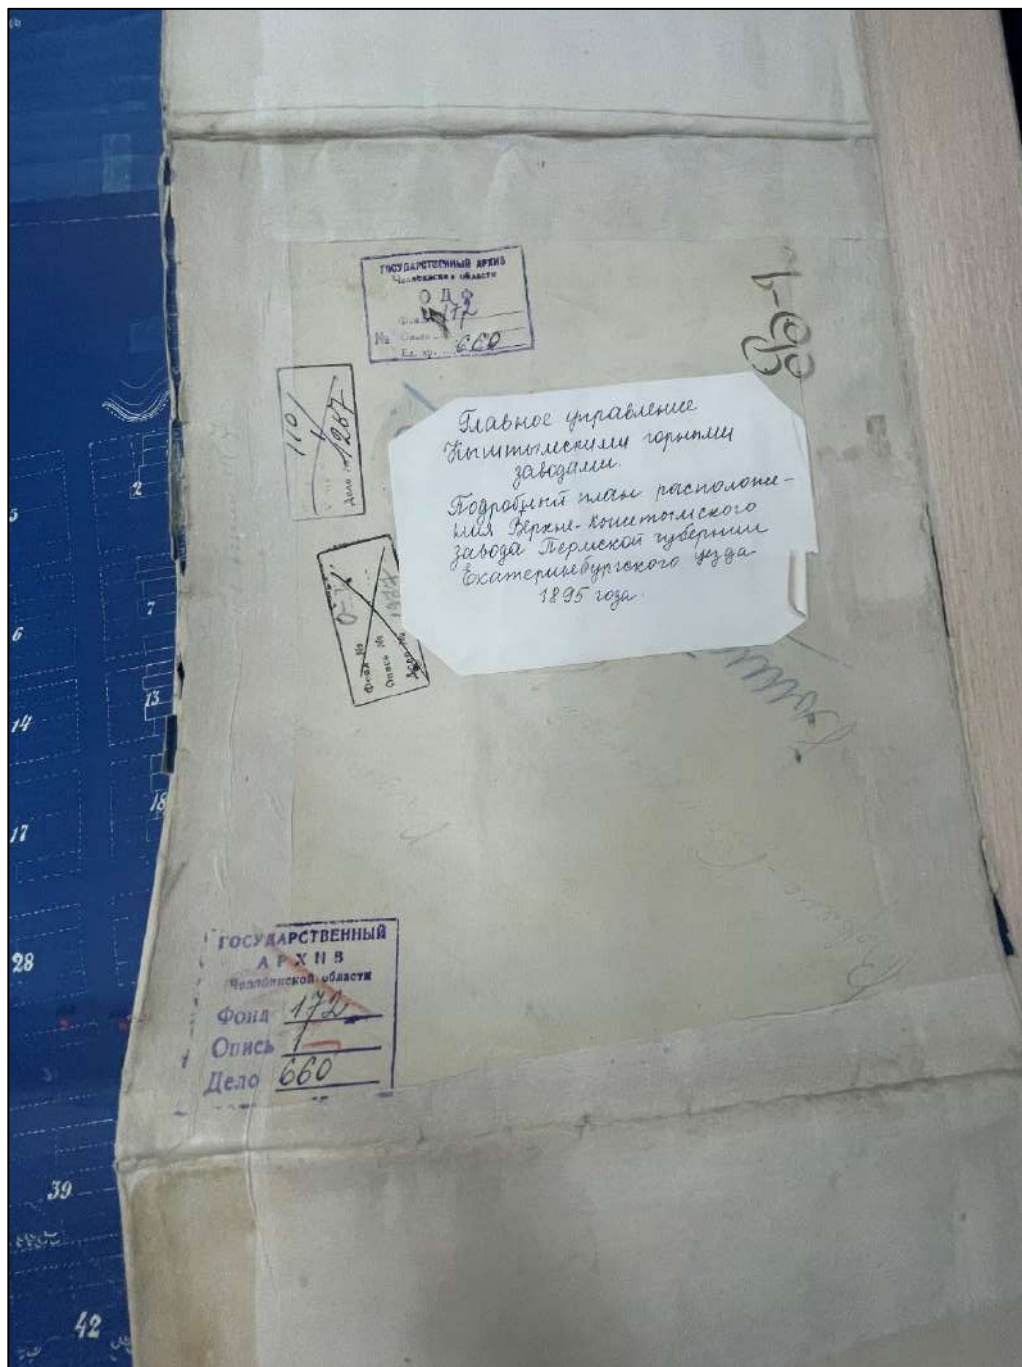 ГОСУДАРСТВЕННЫЙ АРХИВ
Челябинской области
ОДФ
172
№
Опись
Ед. хр. 660
110/
1287
Дело №
Главное управление
Кыштымскими горными
заводами.
Подробный план расположе-
ния Верхне-Кыштымского
завода Пермской губернии
Екатеринбургского уезда
1895 года.
Фонд №
Опись №
ГОСУДАРСТВЕННЫЙ
АРХИВ
Челябинской области
Фонд 172
Опись 1
Дело 660
2
5
7
6
13
14
18
17
28
39
42